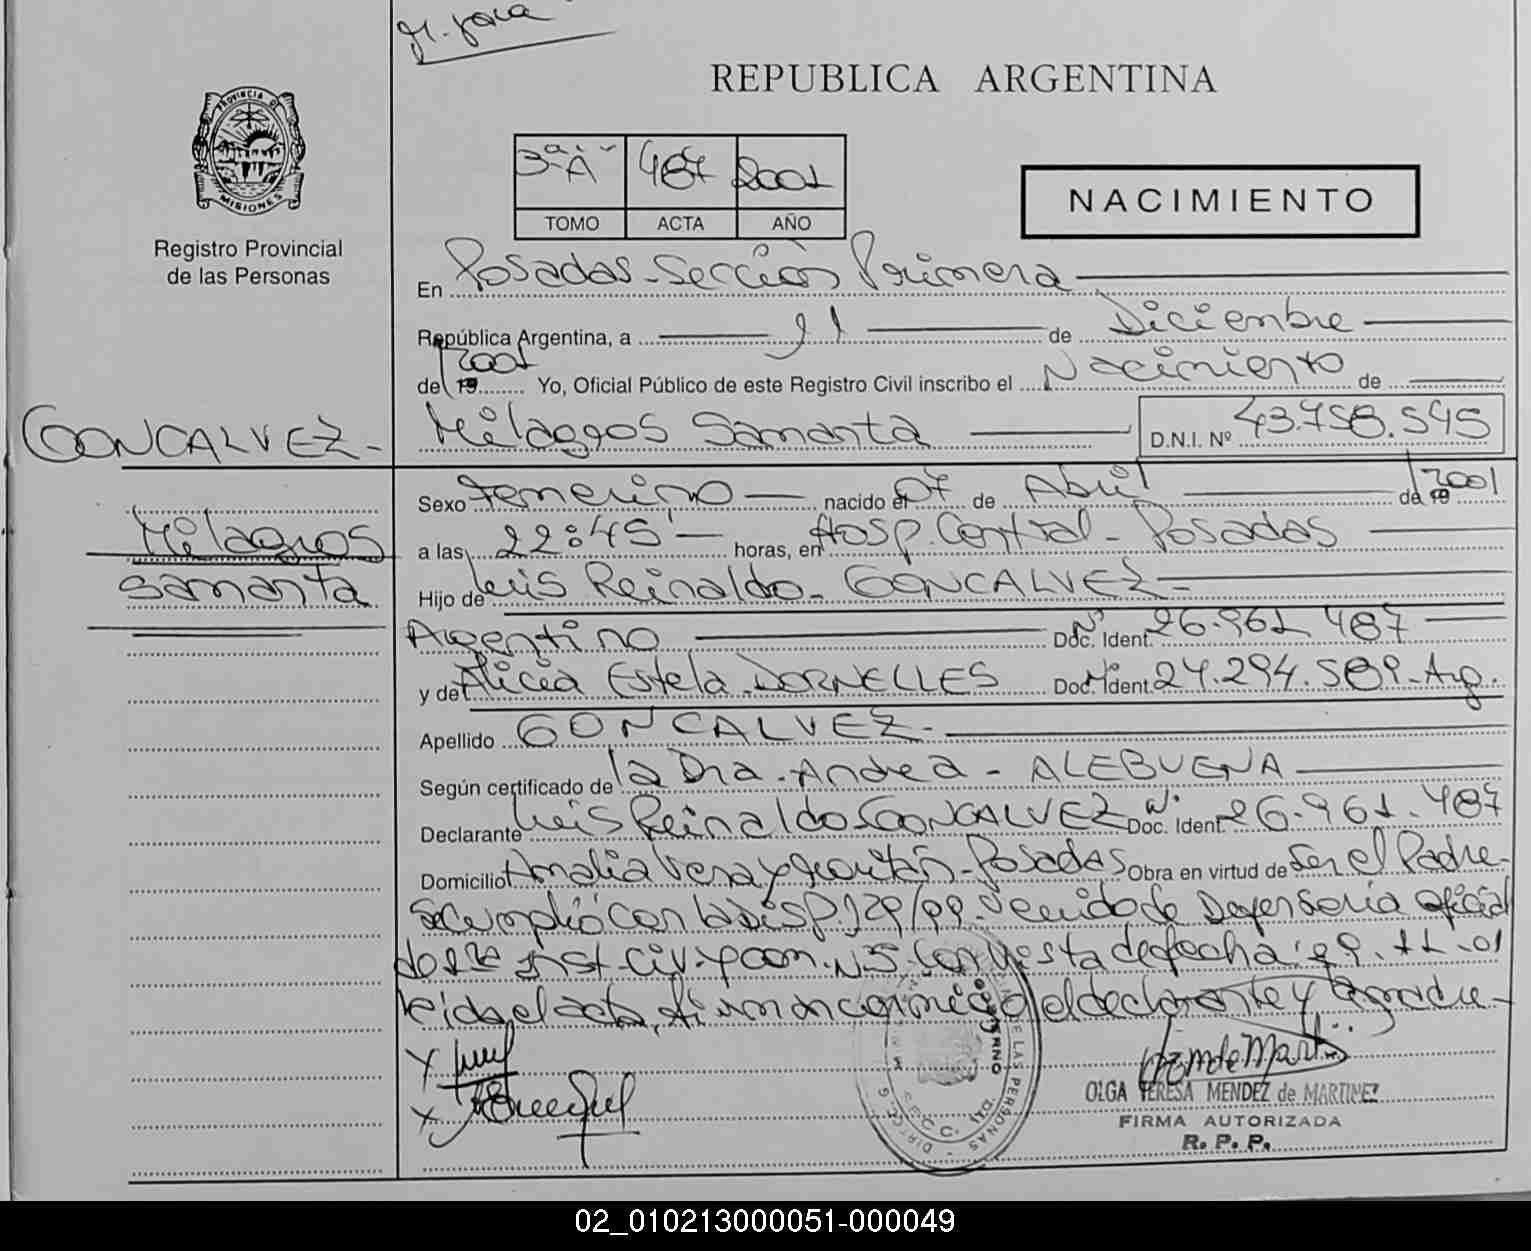 REPUBLICA ARGENTINA
PROVINCIA DE
MISIONES
Registro Provincial
de las Personas
3ª A 487 2001
TOMO ACTA AÑO
NACIMIENTO
En Posadas - Sección Primera
República Argentina, a 11 de Diciembre
de 19 2001 Yo, Oficial Público de este Registro Civil inscribo el Nacimiento de
GONCALVEZ -
Milagros Samanta D.N.I. Nº 43.758.545
Milagros
Samanta
Sexo Femenino nacido el 07 de Abril de 19 2001
a las 22:45' horas, en Hosp. Central - Posadas
Hijo de Luis Reinaldo - GONCALVEZ -
Argentino Doc. Ident. Nº 26.961.487
y de Alicia Estela DORNELLES Doc. Ident. Nº 24.294.589 - Arg.
Apellido GONCALVEZ -
Según certificado de la Dra. Andrea - ALEBUENA
Declarante Luis Reinaldo GONCALVEZ Doc. Ident. Nº 26.961.487
Domicilio Amalia Vera y - Posadas Obra en virtud de Ser el Padre -
Se cumplió con la Disp. 129/99. de Defensoria oficial
de 1ª Inst. Civ. y Com. N 5 con de fecha : 29.11.01
leida el acta, firman conmigo el declarante y la madre -
OLGA TERESA MENDEZ de MARTINEZ
FIRMA AUTORIZADA
R. P. P.
DE LAS PERSONAS
02_010213000051-000049